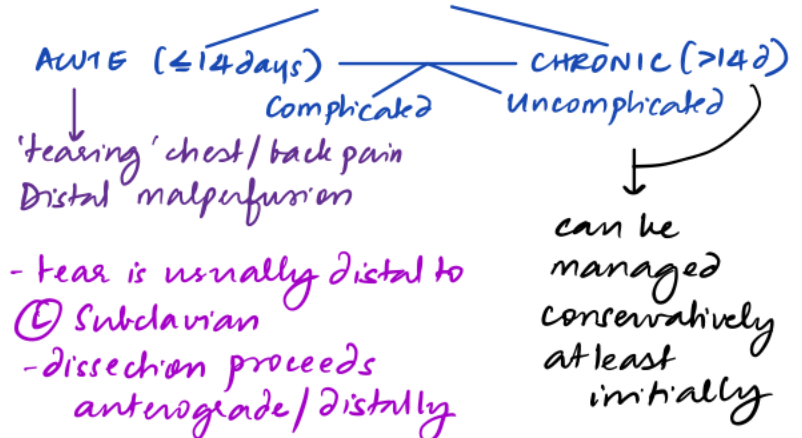 ACUTE (≤14days)
CHRONIC (>14d)
Complicated
Uncomplicated
'tearing' chest/back pain
Distal malperfusion
- tear is usually distal to
Ⓛ Subclavian
- dissection proceeds
anterograde/distally
can be
managed
conservatively
at least
initially